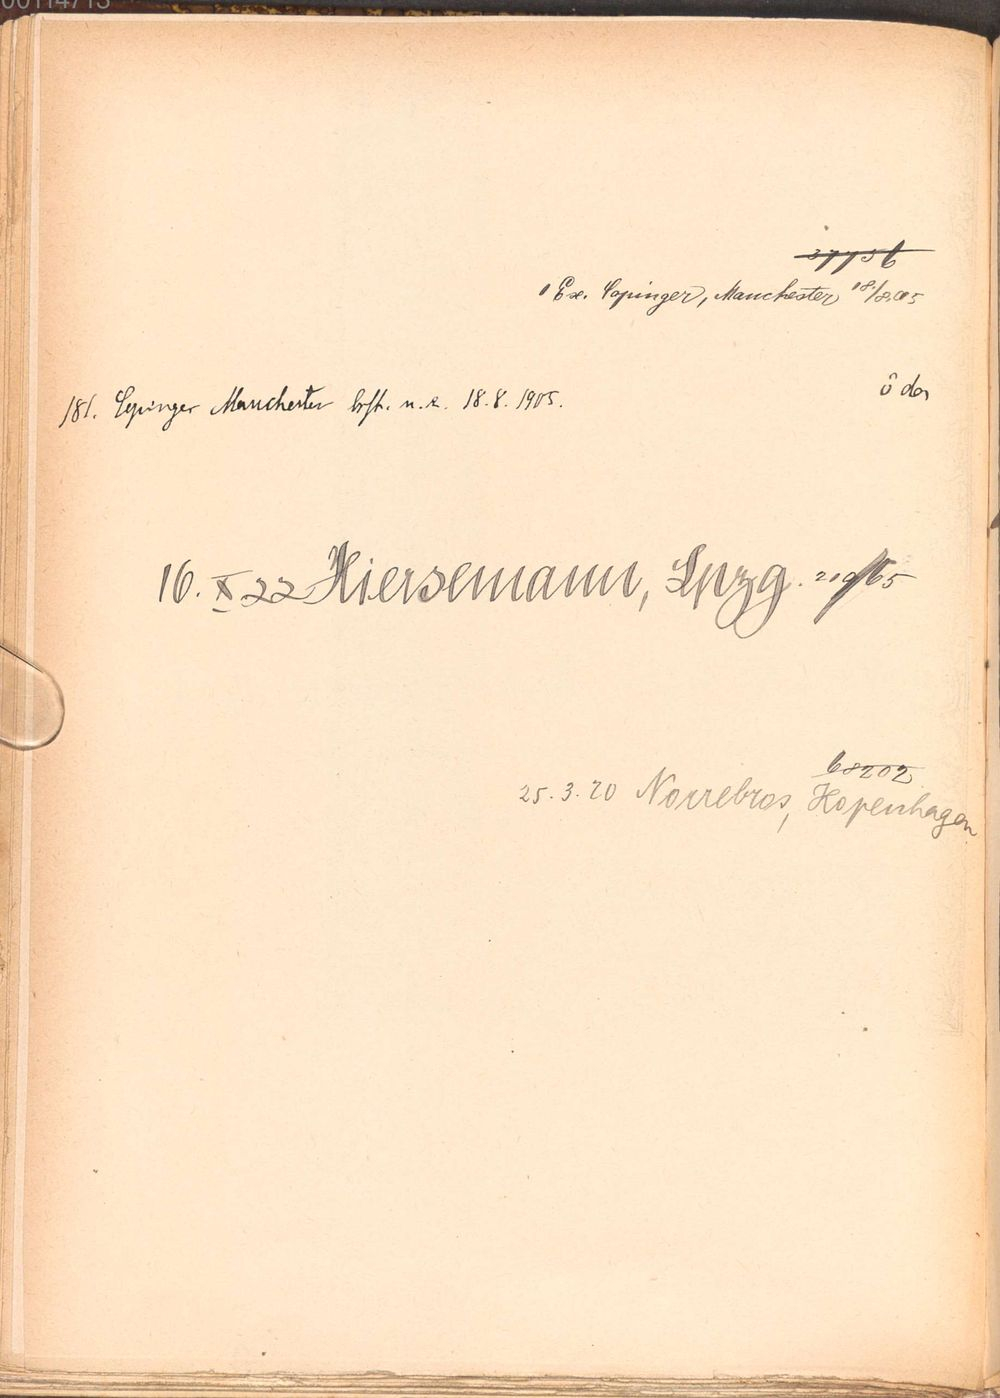 00114713
37756
1 Ex. Copinger, Manchester 18/8.05
181. Copinger Manchester n. R. 18.8.1905.
16. X 22 Hiersemann, Lpzg.
68202
25.3.20 Norrebros, Kopenhagen